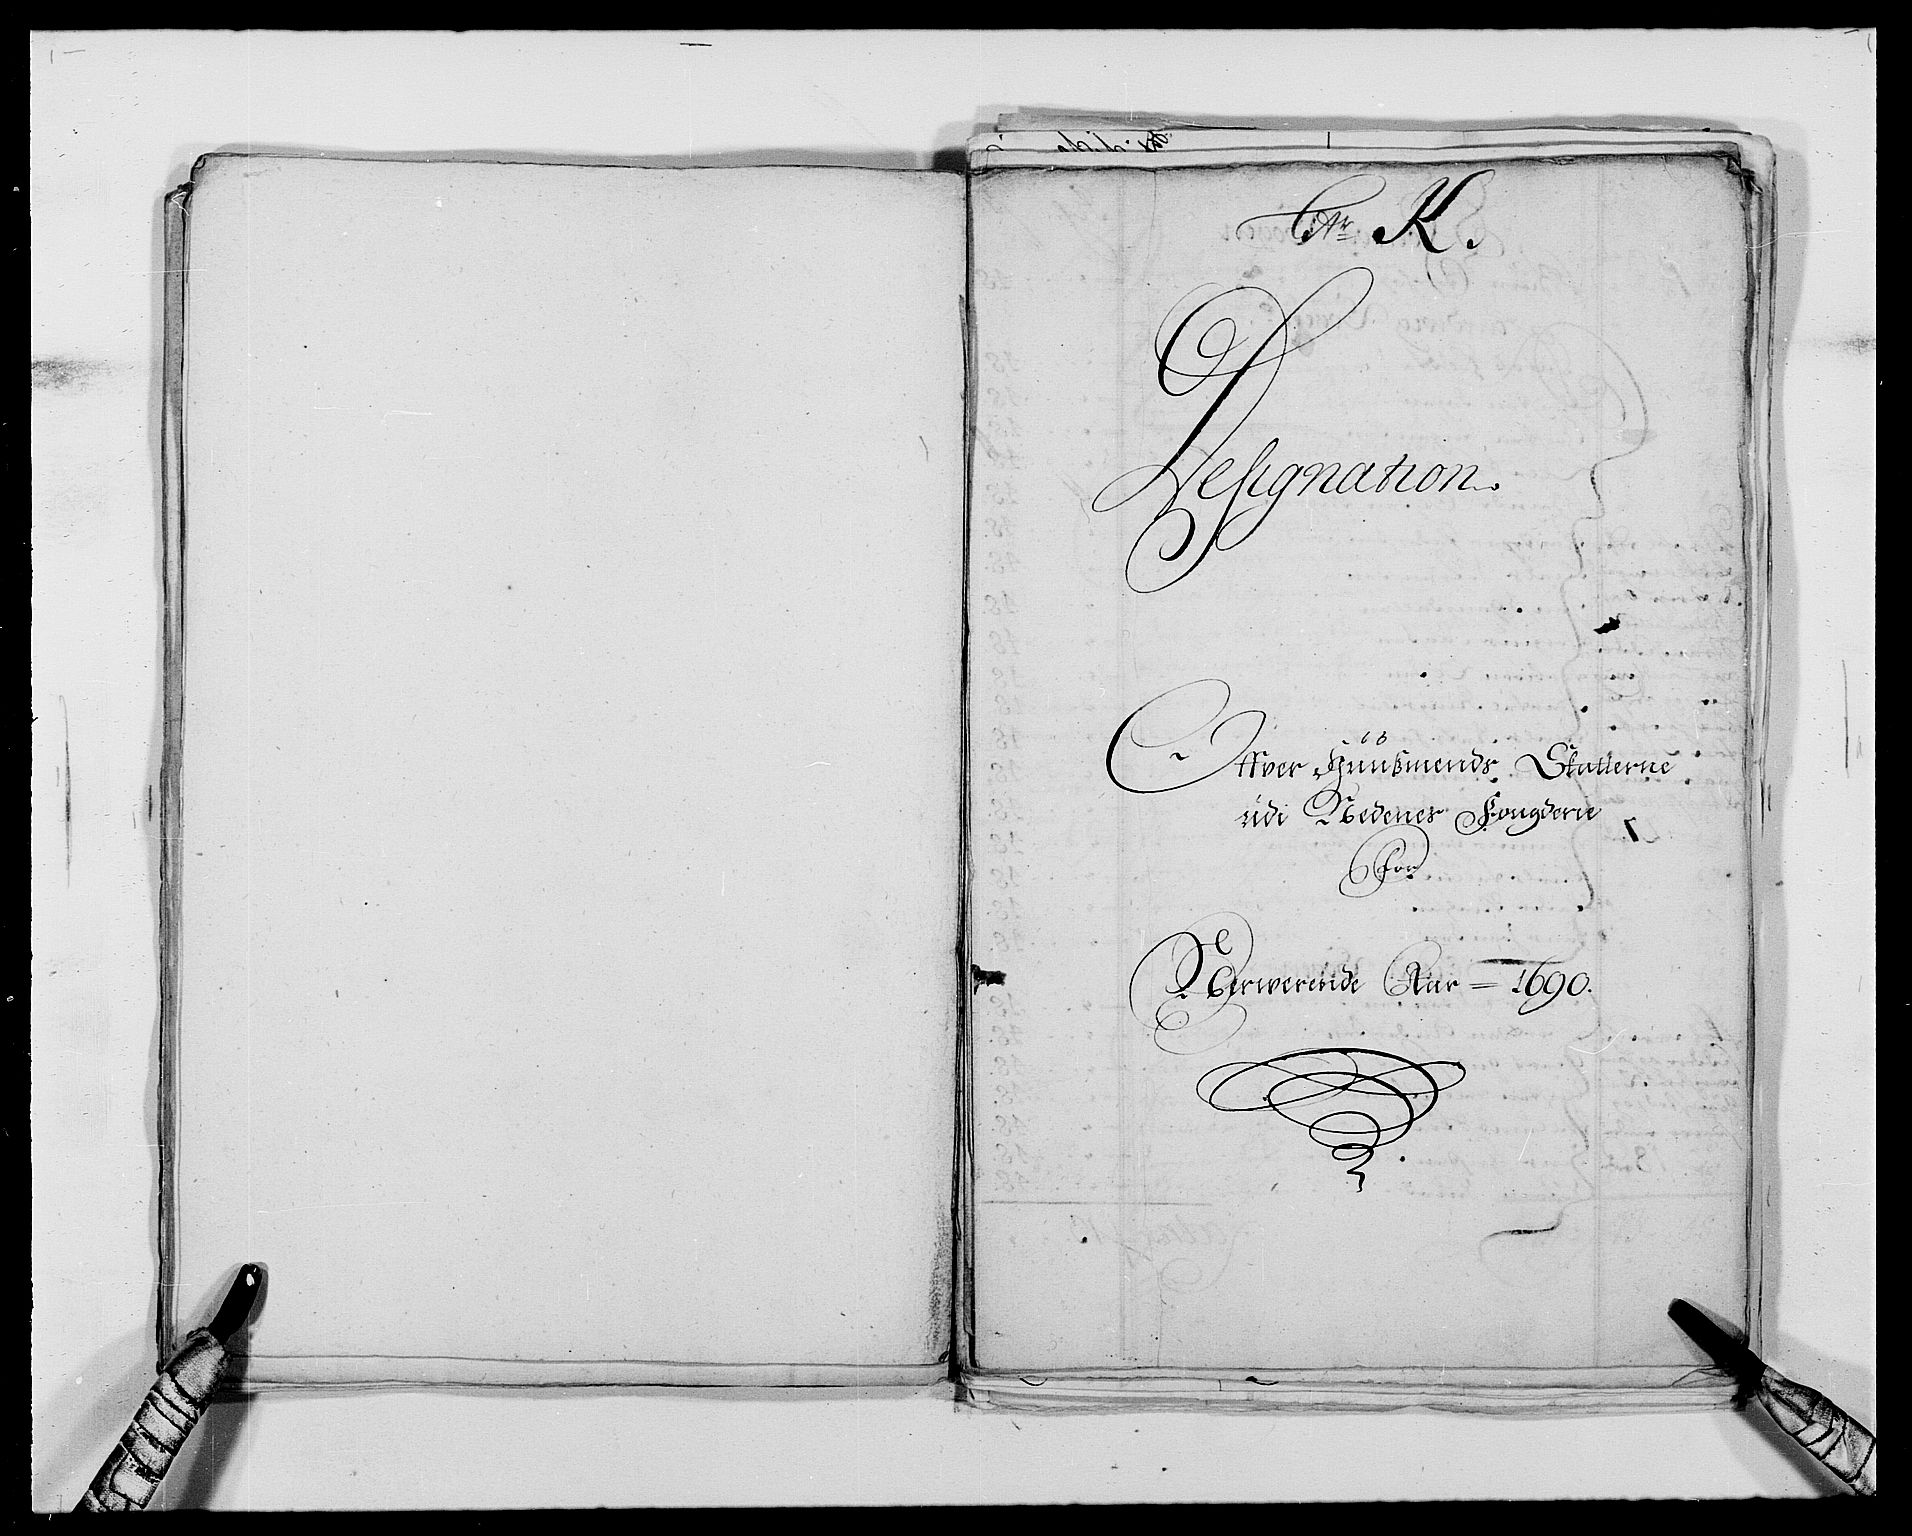 Nr K.
Designation
Offver Huusmends Skatterne
udi Nedenes Fougderie
for
Nerwerende Aar = 1690.